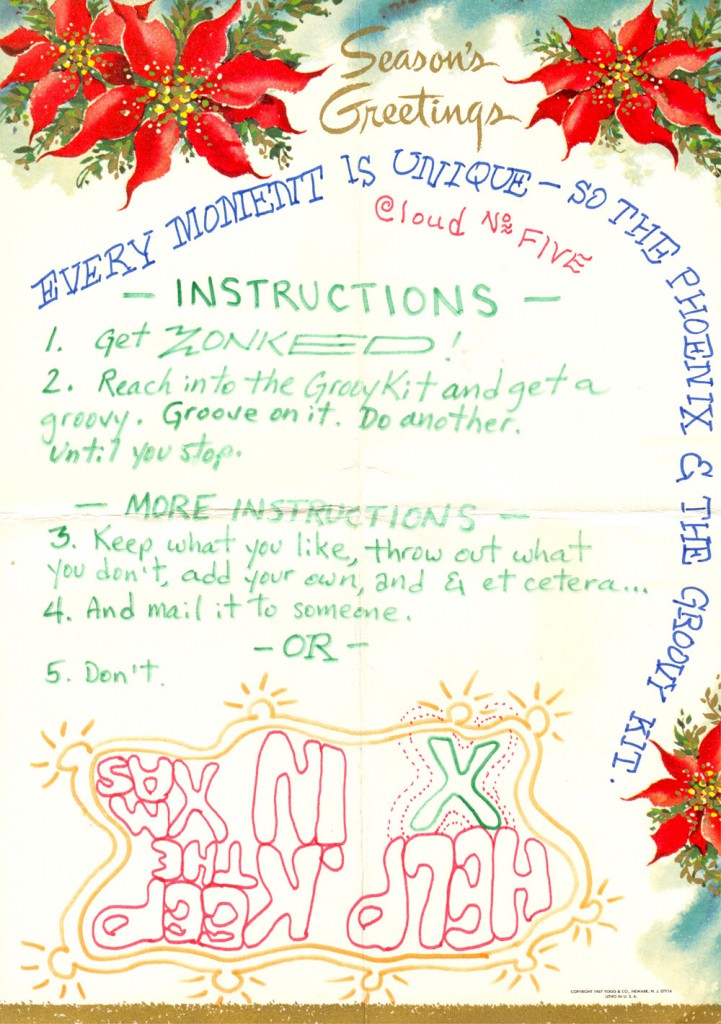 Season's
Greetings
EVERY MOMENT IS UNIQUE – SO THE PHOENIX & THE GROOVY KIT.
Cloud No FIVE
– INSTRUCTIONS –
1. Get ZONKED!
2. Reach into the Groovy Kit and get a
groovy. Groove on it. Do another.
Until you stop.
– MORE INSTRUCTIONS –
3. Keep what you like, throw out what
you don't, add your own, and & et cetera...
4. And mail it to someone.
– OR –
5. Don't.
HELP KEEP
THE
X IN XMAS
COPYRIGHT 1967 YOGG & CO., NEWARK, N. J. 07114
LITHO IN U. S. A.